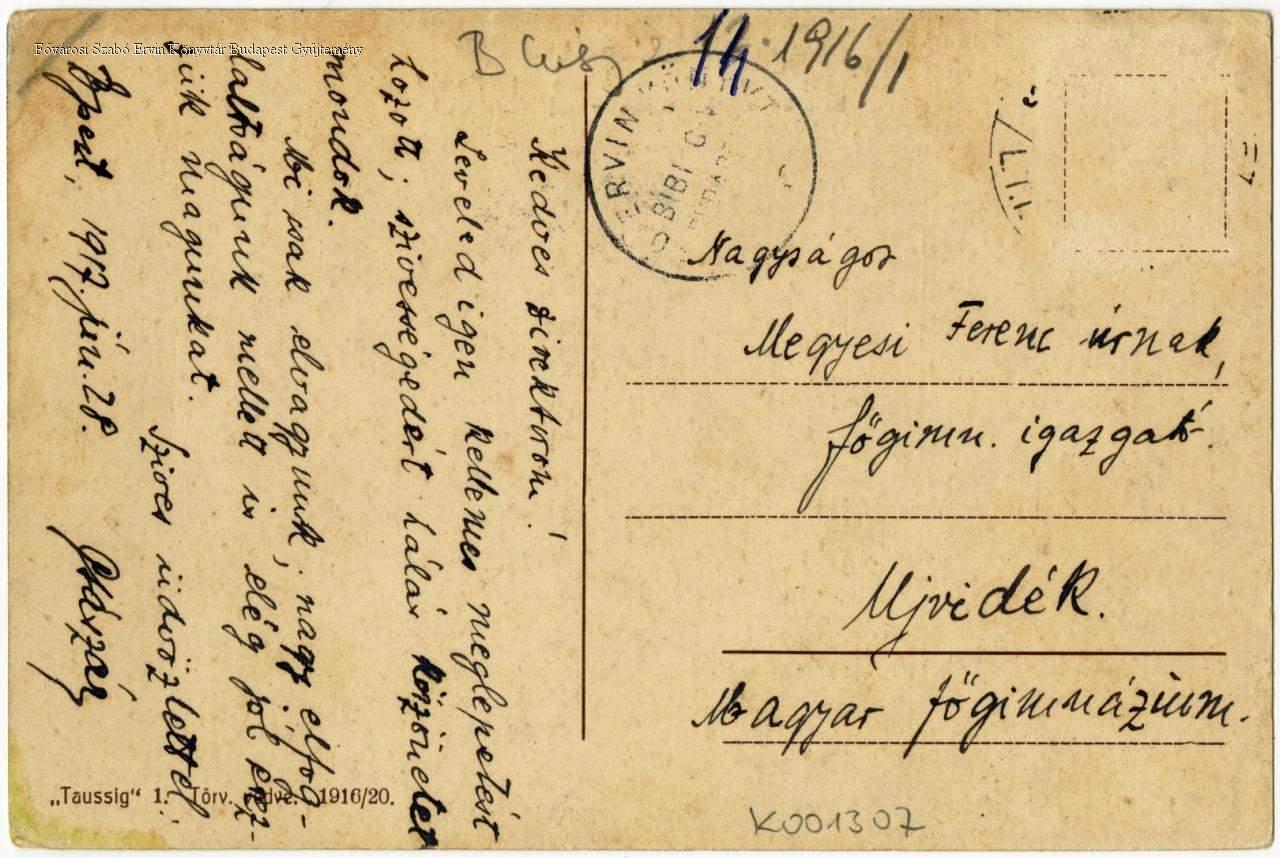 Fővárosi Szabó Ervin Könyvtár Budapest Gyűjtemény
14 1916/1
Kedves Direktorom!
Leveled igen kellemes meglepetést
hozott; szivességedért hálás köszönetet
mondok.
Mi csak elvagyunk; nagy elfog-
laltságunk mellett is elég jól érez-
zük magunkat.
Szives üdvözlettel:
Bpest, 1917. jún. 28.
ERVIN KÖNYVT
Nagyságos
Megyesi Ferenc úrnak,
főgimn. igazgató.
Ujvidék.
Magyar főgimnázium.
„Taussig“ 1. Törv. védve. 1916/20.
K001307